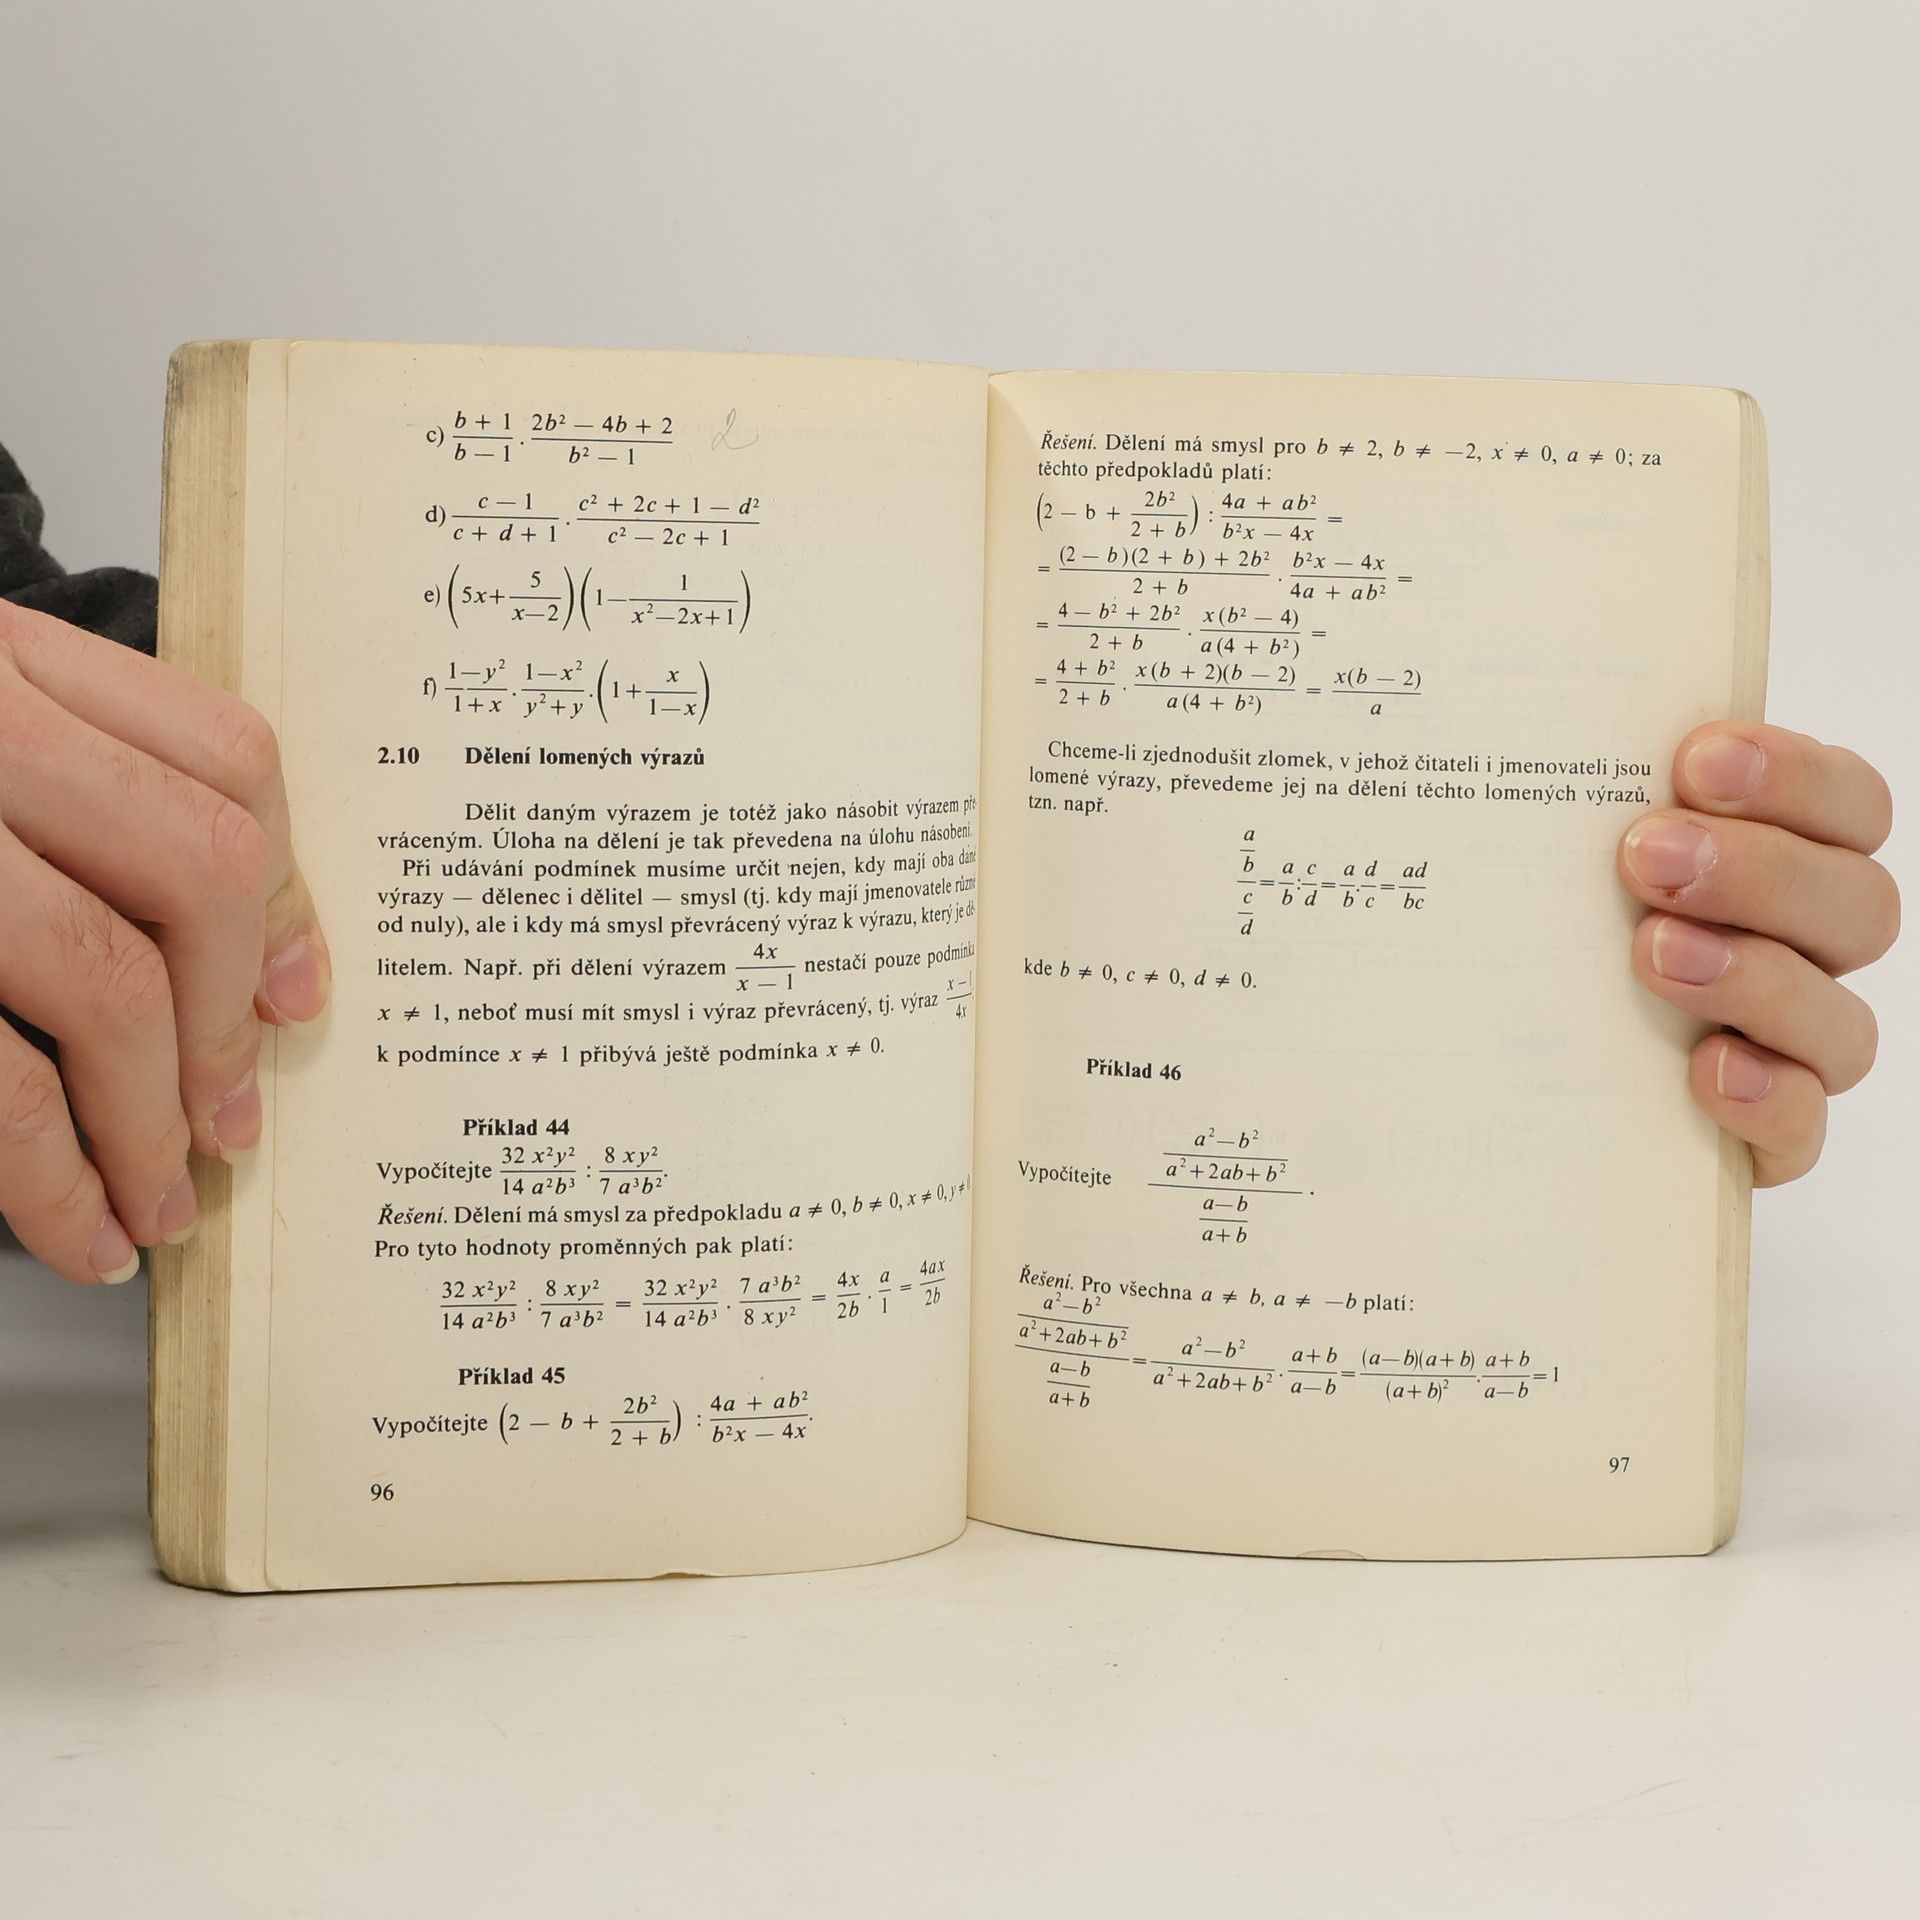 c) \frac{b + 1}{b — 1} . \frac{2b² — 4b + 2}{b² — 1} 2
d) \frac{c — 1}{c + d + 1} . \frac{c² + 2c + 1 — d²}{c² — 2c + 1}
e) (5x+\frac{5}{x—2})(1—\frac{1}{x²—2x+1})
f) \frac{1—y²}{1+x} . \frac{1—x²}{y²+y} . (1+\frac{x}{1—x})
2.10 Dělení lomených výrazů
Dělit daným výrazem je totéž jako násobit výrazem pře-
vráceným. Úloha na dělení je tak převedena na úlohu násobení.
Při udávání podmínek musíme určit nejen, kdy mají oba dané
výrazy — dělenec i dělitel — smysl (tj. kdy mají jmenovatele různé
od nuly), ale i kdy má smysl převrácený výraz k výrazu, který je dě-
litelem. Např. při dělení výrazem \frac{4x}{x — 1} nestačí pouze podmínka
x ≠ 1, neboť musí mít smysl i výraz převrácený, tj. výraz \frac{x — 1}{4x}
k podmínce x ≠ 1 přibývá ještě podmínka x ≠ 0.
Příklad 44
Vypočítejte \frac{32 x²y²}{14 a²b³} : \frac{8 xy²}{7 a³b²}.
Řešení. Dělení má smysl za předpokladu a ≠ 0, b ≠ 0, x ≠ 0, y ≠ 0.
Pro tyto hodnoty proměnných pak platí:
\frac{32 x²y²}{14 a²b³} : \frac{8 xy²}{7 a³b²} = \frac{32 x²y²}{14 a²b³} . \frac{7 a³b²}{8 xy²} = \frac{4x}{2b} . \frac{a}{1} = \frac{4ax}{2b}
Příklad 45
Vypočítejte (2 — b + \frac{2b²}{2 + b}) : \frac{4a + ab²}{b²x — 4x}.
96
Řešení. Dělení má smysl pro b ≠ 2, b ≠ —2, x ≠ 0, a ≠ 0; za
těchto předpokladů platí:
(2 — b + \frac{2b²}{2 + b}) : \frac{4a + ab²}{b²x — 4x} =
= \frac{(2 — b)(2 + b) + 2b²}{2 + b} . \frac{b²x — 4x}{4a + ab²} =
= \frac{4 — b² + 2b²}{2 + b} . \frac{x(b² — 4)}{a(4 + b²)} =
= \frac{4 + b²}{2 + b} . \frac{x(b + 2)(b — 2)}{a(4 + b²)} = \frac{x(b — 2)}{a}
Chceme-li zjednodušit zlomek, v jehož čitateli i jmenovateli jsou
lomené výrazy, převedeme jej na dělení těchto lomených výrazů,
tzn. např.
\frac{\frac{a}{b}}{\frac{c}{d}} = \frac{a}{b} : \frac{c}{d} = \frac{a}{b} . \frac{d}{c} = \frac{ad}{bc}
kde b ≠ 0, c ≠ 0, d ≠ 0.
Příklad 46
Vypočítejte \frac{\frac{a²—b²}{a²+2ab+b²}}{\frac{a—b}{a+b}}.
Řešení. Pro všechna a ≠ b, a ≠ —b platí:
\frac{\frac{a²—b²}{a²+2ab+b²}}{\frac{a—b}{a+b}} = \frac{a²—b²}{a²+2ab+b²} . \frac{a+b}{a—b} = \frac{(a—b)(a+b)}{(a+b)²} . \frac{a+b}{a—b} = 1
97